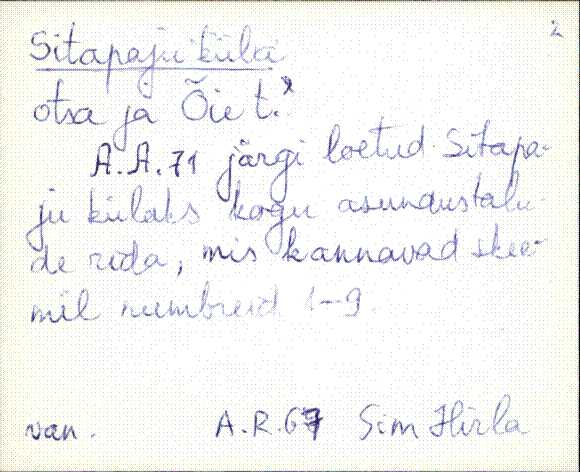 2
Sitapaju küla
otsa ja Õie t.x
A.A.71 järgi loetud Sitapa-
ju külaks kogu asundustalu-
de rida, mis kannavad skee-
mil numbreid 1-9.
van. A.R.67 Sim Hirla